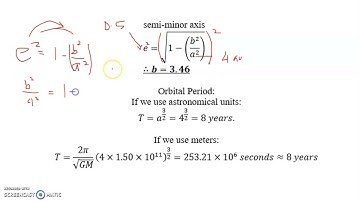 0.5
semi-minor axis
e² = 1 - (b²/a²)
e² = (√(1 - (b²/a²)))²
4 au
∴ b = 3.46
b²/4² = 1 -
Orbital Period:
If we use astronomical units:
T = a^(3/2) = 4^(3/2) = 8 years.
If we use meters:
T = 2π/√GM (4 × 1.50 × 10¹¹)^(3/2) = 253.21 × 10⁶ seconds ≈ 8 years
SCREENCAST
MATIC